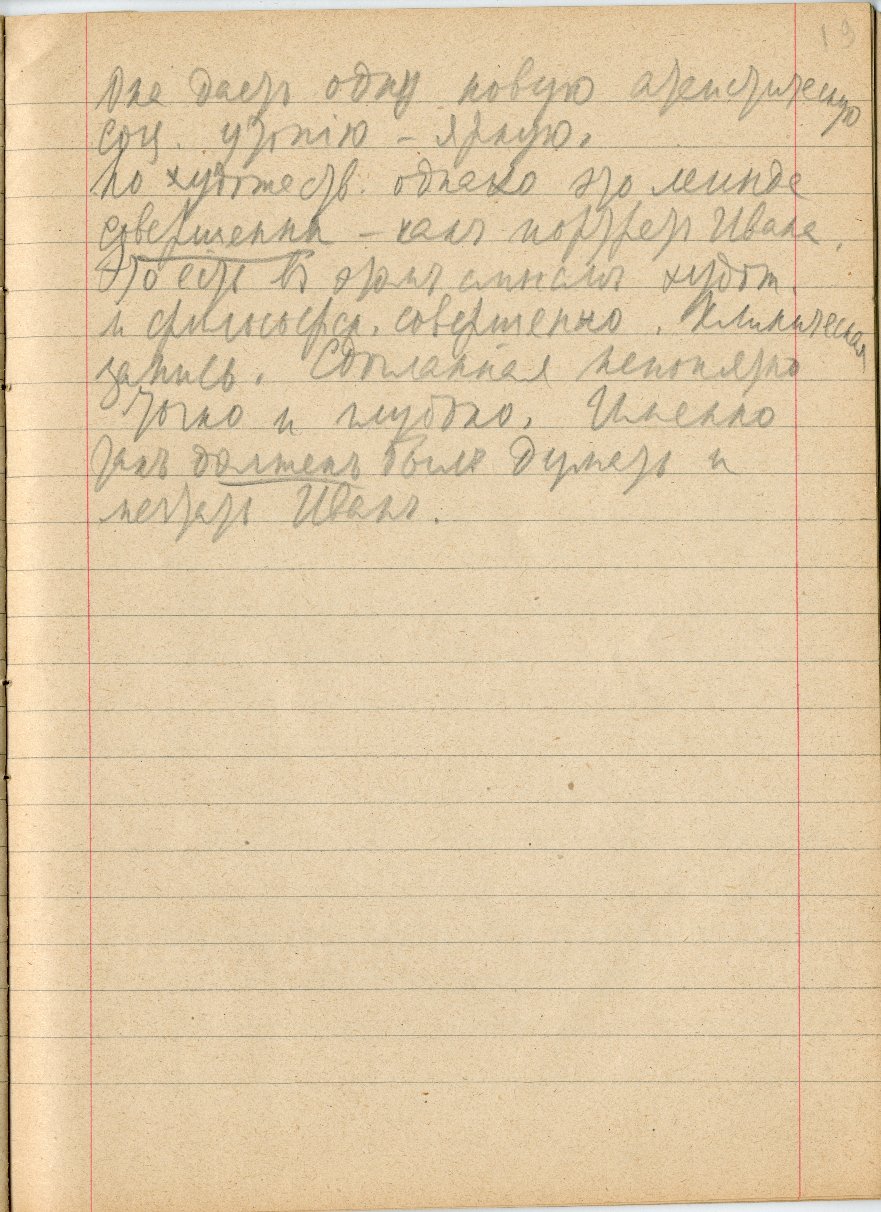 19
Она даетъ одну новую атеистическую
соц. утопію – яркую.
Но художеств. однако это легенда
совершенна – какъ портретъ Ивана.
Это есть въ этомъ смыслѣ худож.
и философск. совершенно. Клиническая
запись. Сдѣланная непонятно
точно и глубоко. Именно
такъ долженъ былъ думать и
мечтать Иванъ.